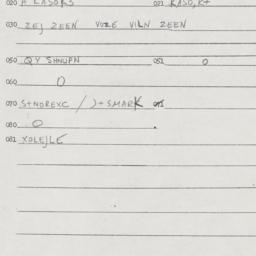 020 A LASORS 021 KASO, K+
030 ZEJ ZEEN VUZE VILN ZEEN
050 QY SHNUPN 051 O
060 O
070 S+NOREXC / )+SMARK 071
080 O
081 XOLEJLE